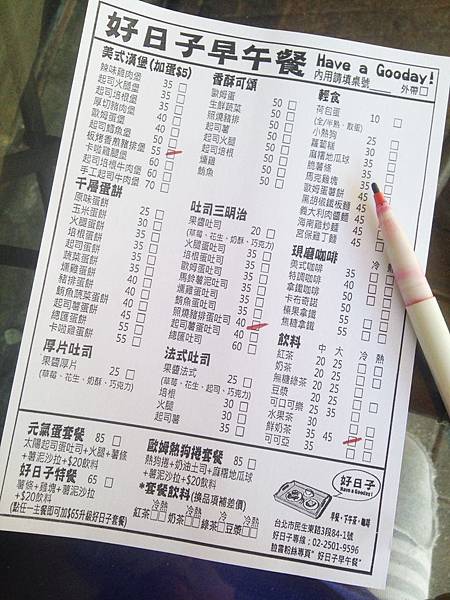 好日子早午餐
Have a Gooday!
內用請填桌號 外帶□
美式漢堡(加蛋$5)
辣味雞肉堡 35 □
起司火腿堡 35 □
起司培根堡 35 □
厚切豬肉堡 40 □
歐姆蛋堡 40 □
起司鱈魚堡 50 □
板烤香煎豬排堡 55 □
卡啦雞腿堡 60 □
起司培根牛肉堡 60 □
手工起司牛肉堡 70 □
千層蛋餅
原味蛋餅 25 □
玉米蛋餅 30 □
火腿蛋餅 30 □
培根蛋餅 30 □
起司蛋餅 30 □
蔬菜蛋餅 35 □
燻雞蛋餅 35 □
豬排蛋餅 40 □
鮪魚蔬菜蛋餅 45 □
起司薯蛋餅 45 □
總匯蛋餅 55 □
卡啦雞蛋餅 55 □
厚片吐司
果醬厚片 25 □
(草莓、花生、奶酥、巧克力)
香酥可頌
歐姆蛋 50 □
生鮮蔬菜 50 □
照燒豬排 50 □
起司薯 50 □
起司火腿 50 □
起司培根 50 □
燻雞 50 □
鮪魚 50 □
吐司三明治
果醬吐司 20 □
(草莓、花生、奶酥、巧克力)
火腿蛋吐司
培根蛋吐司
歐姆蛋吐司
馬鈴薯泥吐司
燻雞蛋吐司
鮪魚蛋吐司
照燒豬排蛋吐司 40 □
起司薯蛋吐司 40 □
總匯吐司 60 □
法式吐司
果醬法式 25 □
(草莓、花生、起司、巧克力)
培根 30 □
火腿 30 □
起司薯 35 □
輕食
荷包蛋 10 □
(全/半熟、散蛋)
小熱狗 25 □
蘿蔔糕 30 □
麻糬地瓜球 35 □
脆薯條 35 □
麥克雞塊 35
歐姆蛋薯餅 45
黑胡椒鐵板麵 45
義大利肉醬麵 45
海南雞炒麵 45
宮保雞丁麵 45
現磨咖啡 冷 熱
美式咖啡 35
特調咖啡
拿鐵咖啡
卡布奇諾
榛果拿鐵
焦糖拿鐵 55
飲料 中 大 冷 熱
紅茶 20 25
奶茶 20 25
無糖綠茶 20 25
豆漿 20 25
可口可樂
水果茶 30
鮮奶茶 30
可可亞 35 45
元氣蛋套餐 85 □
太陽起司蛋吐司+火腿+薯條
+薯泥沙拉+$20飲料
好日子特餐 65 □
薯條+雞塊+薯泥沙拉
+$20飲料
(點任一主餐即可加$65升級好日子套餐)
歐姆熱狗捲套餐 85 □
熱狗捲+奶油土司+麻糬地瓜球
+薯泥沙拉+$20飲料
*套餐飲料(換品項補差價)
冷熱 冷熱 冷熱 冷熱
紅茶□□ 奶茶□□ 綠茶□豆漿□□
好日子
Have a Gooday!
早餐·下午茶·咖啡
台北市民生東路3段84-1號
好日子專線：02-2501-9596
臉書粉絲專頁"好日子早午餐"